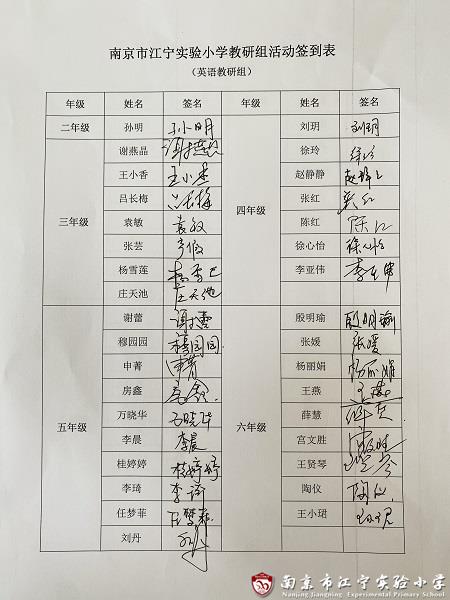 南京市江宁实验小学教研组活动签到表
（英语教研组）
年级 姓名 签名 年级 姓名 签名
二年级 孙明 孙小明 四年级 刘玥 刘玥
三年级 谢燕晶 谢燕晶 徐玲 徐玲
王小香 王小香 赵静静 赵静静
吕长梅 吕长梅 张红
袁敏 袁敏 陈红 陈红
张芸 徐心怡 徐心怡
杨雪莲 李亚伟 李亚伟
庄天池 庄天池
五年级 谢蕾 谢蕾 六年级 殷明瑜 殷明瑜
穆园园 穆园园 张媛 张媛
申菁 申菁 杨丽娟 杨丽娟
房鑫 王燕 王燕
万晓华 万晓华 薛慧
李晨 李晨 宫文胜
桂婷婷 桂婷婷 王贤琴
李琦 李琦 陶仪 陶仪
任梦菲 任梦菲 王小珺
刘丹
南京市江宁实验小学
Nanjing Jiangning Experimental Primary School